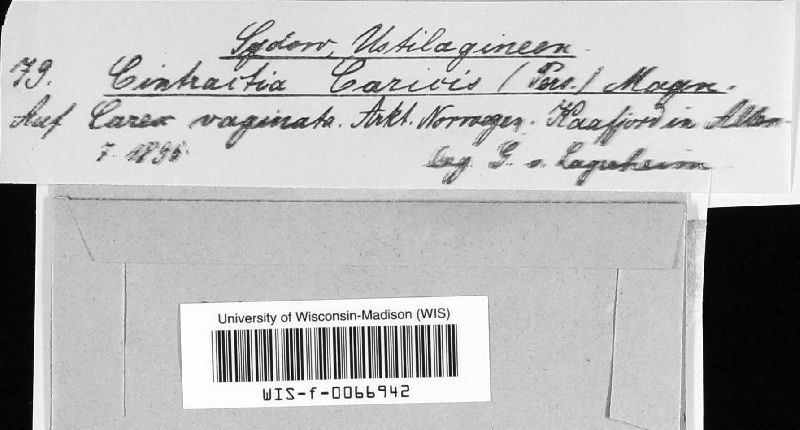 Sydow, Ustilagineen.
79. Cintractia Caricis (Pers.) Magn.
Auf Carex vaginata. Arkt. Norwegen. Kaafjord in Alten
7. 1895
leg. G. v. Lagerheim
University of Wisconsin-Madison (WIS)
WIS-f-0066942